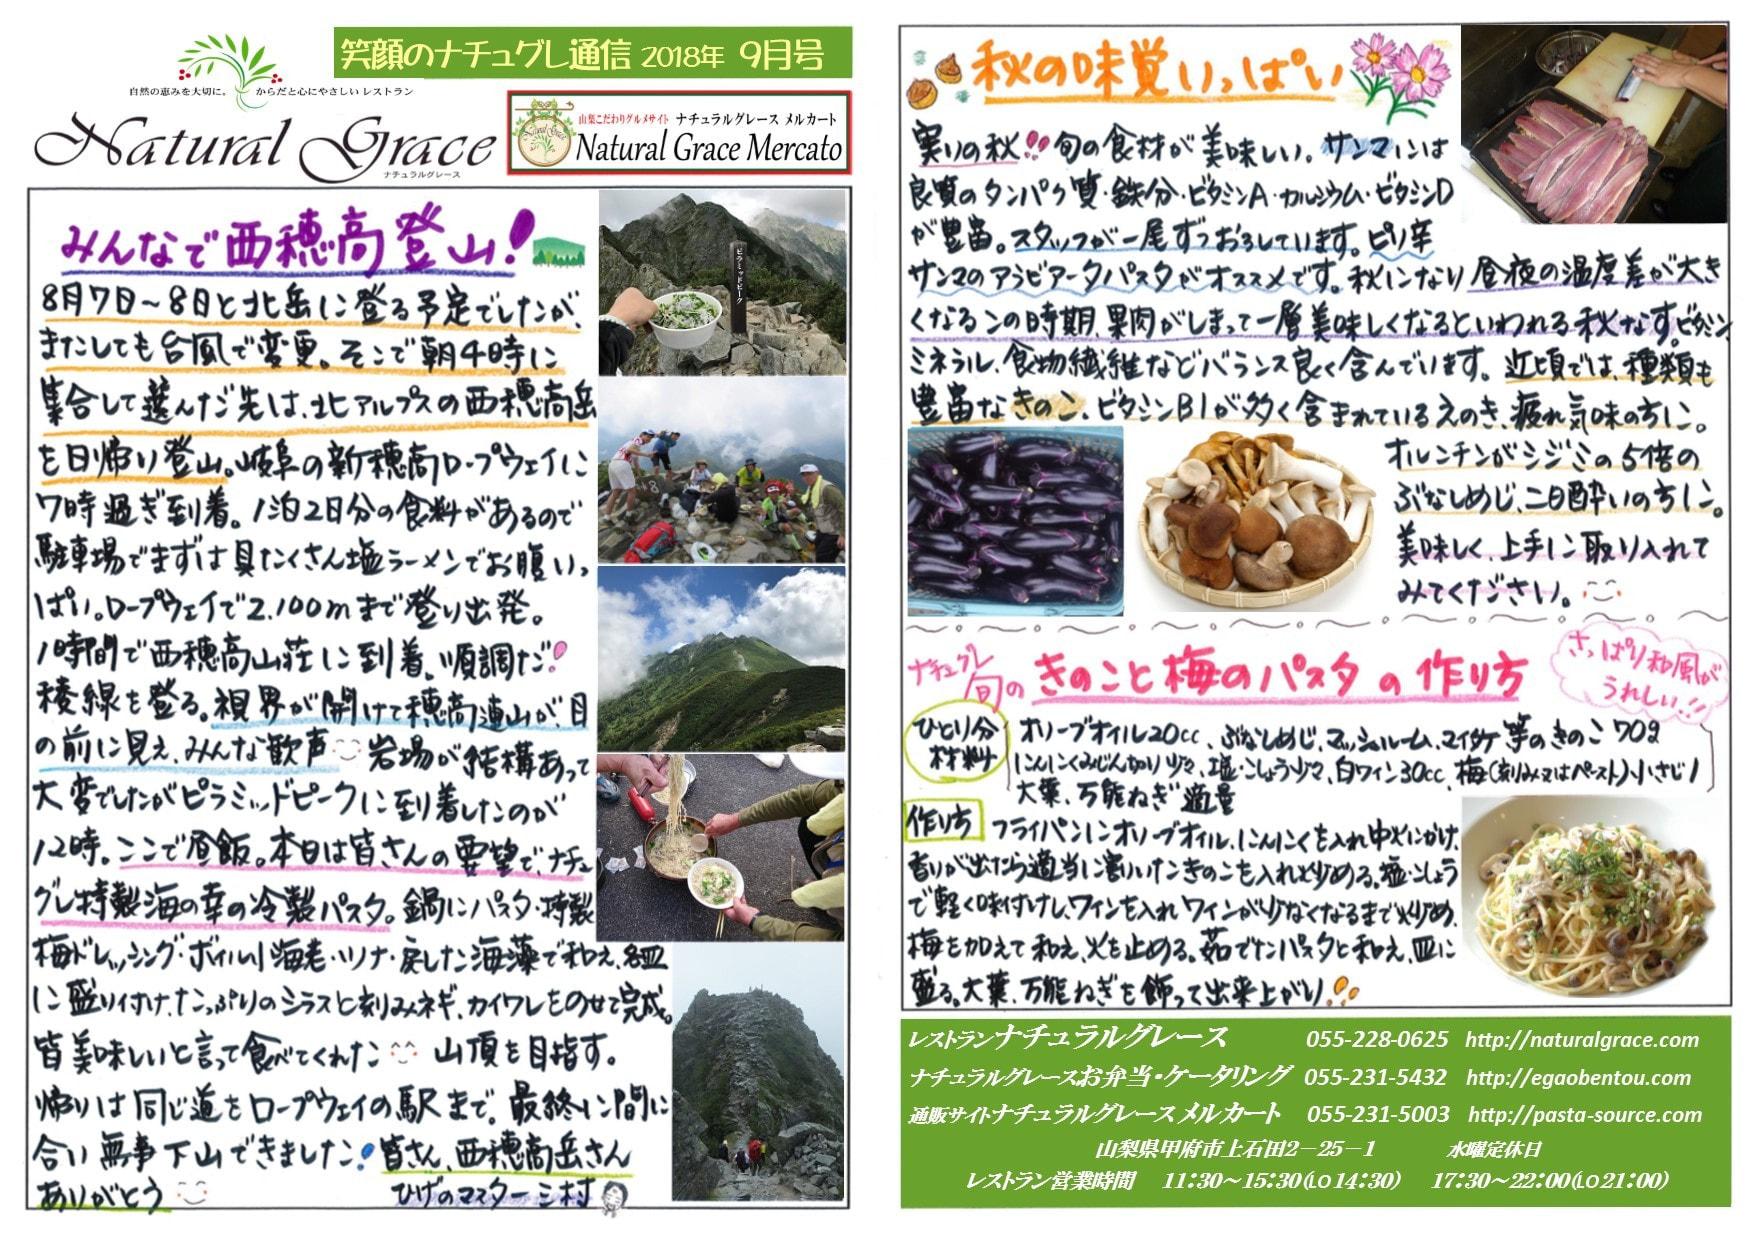 笑顔のナチュグレ通信 2018年 9月号
自然の恵みを大切に。 からだと心にやさしい レストラン
Natural Grace
ナチュラルグレース
山梨こだわりグルメサイト ナチュラルグレース メルカート
Natural Grace Mercato
みんなで西穂高登山!
8月7日〜8日と北岳に登る予定でしたが、
またしても台風で変更。そこで朝4時に
集合して選んだ先は、北アルプスの西穂高岳
を日帰り登山。岐阜の新穂高ロープウェイに
7時過ぎ到着。1泊2日分の食料があるので
駐車場でまずは具たくさん塩ラーメンでお腹いっ
ぱい。ロープウェイで2.100mまで登り出発。
1時間で西穂高山荘に到着。順調だ!
稜線を登る。視界が開けて穂高連山が、目
の前に見え、みんな歓声 岩場が結構あって
大変でしたがピラミッドピークに到着したのが
12時。ここで昼飯。本日は皆さんの要望で、ナチュ
グレ特製海の幸の冷製パスタ。鍋にパスタ・特製
梅ドレッシング・ボイル小海老・ツナ・戻した海藻で和え、各皿
に盛り付け、たっぷりのシラスと刻みネギ、カイワレをのせて完成。
皆美味しいと言って食べてくれた 山頂を目指す。
帰りは同じ道をロープウェイの駅まで。最終に間に
合い無事下山できました! 皆さん、西穂高岳さん
ありがとう ひげのマスター 三村
ピラミッドピーク
秋の味覚いっぱい
実りの秋!! 旬の食材が美味しい。サンマには
良質のタンパク質・鉄分・ビタミンA・カルシウム・ビタミンD
が豊富。スタッフが一尾ずつおろしています。ピリ辛
サンマのアラビアータパスタがオススメです。秋になり昼夜の温度差が大き
くなるこの時期、果肉がしまって一層美味しくなるといわれる秋なす。ビタミン、
ミネラル、食物繊維などバランス良く含んでいます。近頃では、種類も
豊富なきのこ、ビタミンB1が多く含まれているえのき、疲れ気味の方に。
オルニチンがシジミの5倍の
ぶなしめじ、二日酔いの方に。
美味しく、上手に取り入れて
みてください。
ナチュグレ旬の きのこと梅のパスタの作り方
さっぱり和風が
うれしい!!
ひとり分材料 オリーブオイル20cc、ぶなしめじ、マッシュルーム、マイタケ等のきのこ70g
にんにくみじん切り少々、塩・こしょう少々、白ワイン30cc、梅(刻みまたはペースト)小さじ1
大葉、万能ねぎ適量
作り方 フライパンにオリーブオイル、にんにくを入れ中火にかけ、
香りが出たら適当に割いたきのこを入れ炒める。塩・こしょう
で軽く味付けし、ワインを入れワインが少なくなるまで炒め、
梅を加えて和え、火を止める。茹でたパスタと和え、皿に
盛る。大葉、万能ねぎを飾って出来上がり!!
レストランナチュラルグレース 055-228-0625 http://naturalgrace.com
ナチュラルグレースお弁当・ケータリング 055-231-5432 http://egaobentou.com
通販サイトナチュラルグレース メルカート 055-231-5003 http://pasta-source.com
山梨県甲府市上石田2−25−1 水曜定休日
レストラン営業時間 11:30〜15:30(LO 14:30) 17:30〜22:00(LO 21:00)